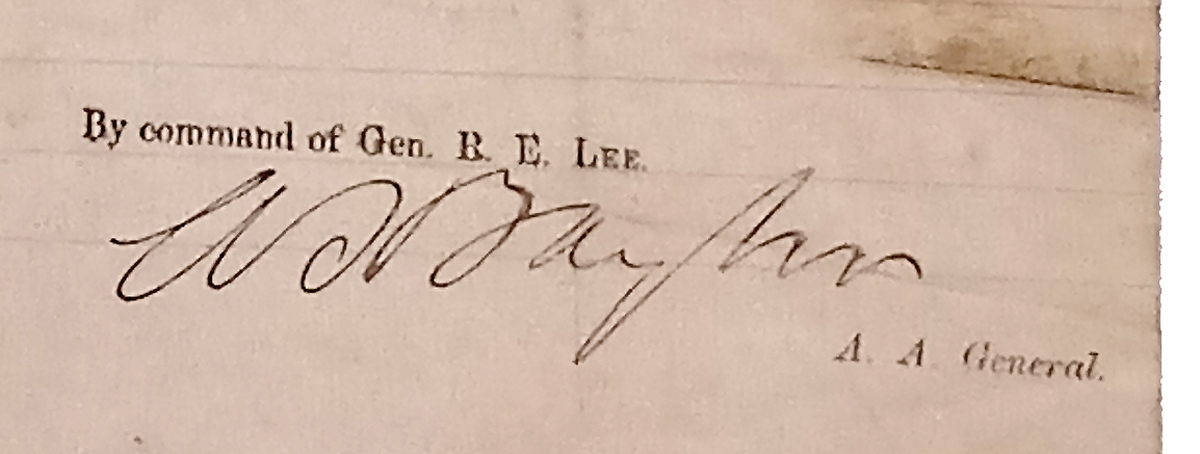 By command of Gen. R. E. LEE.
W H Taylor
A. A. General.